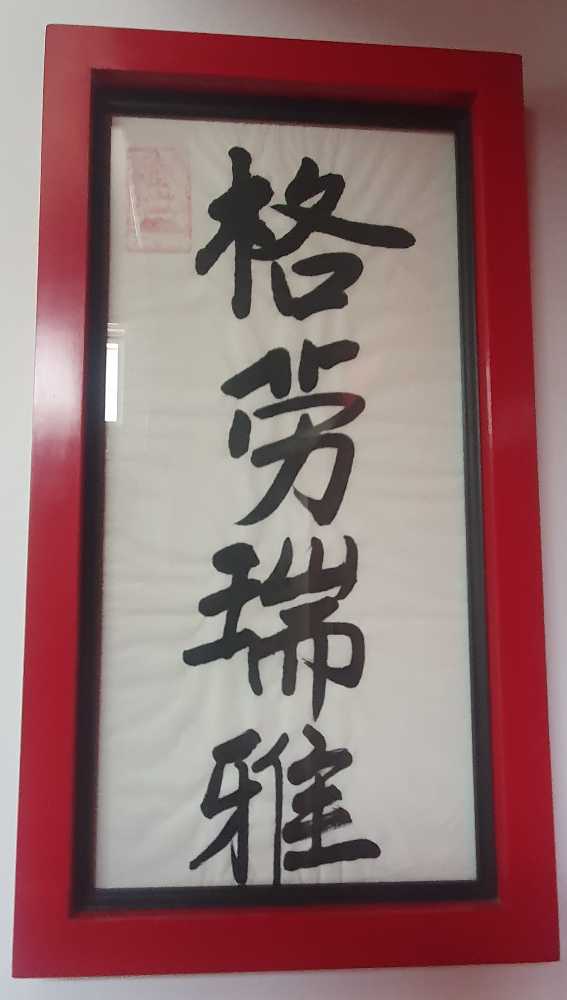 格劳瑞雅